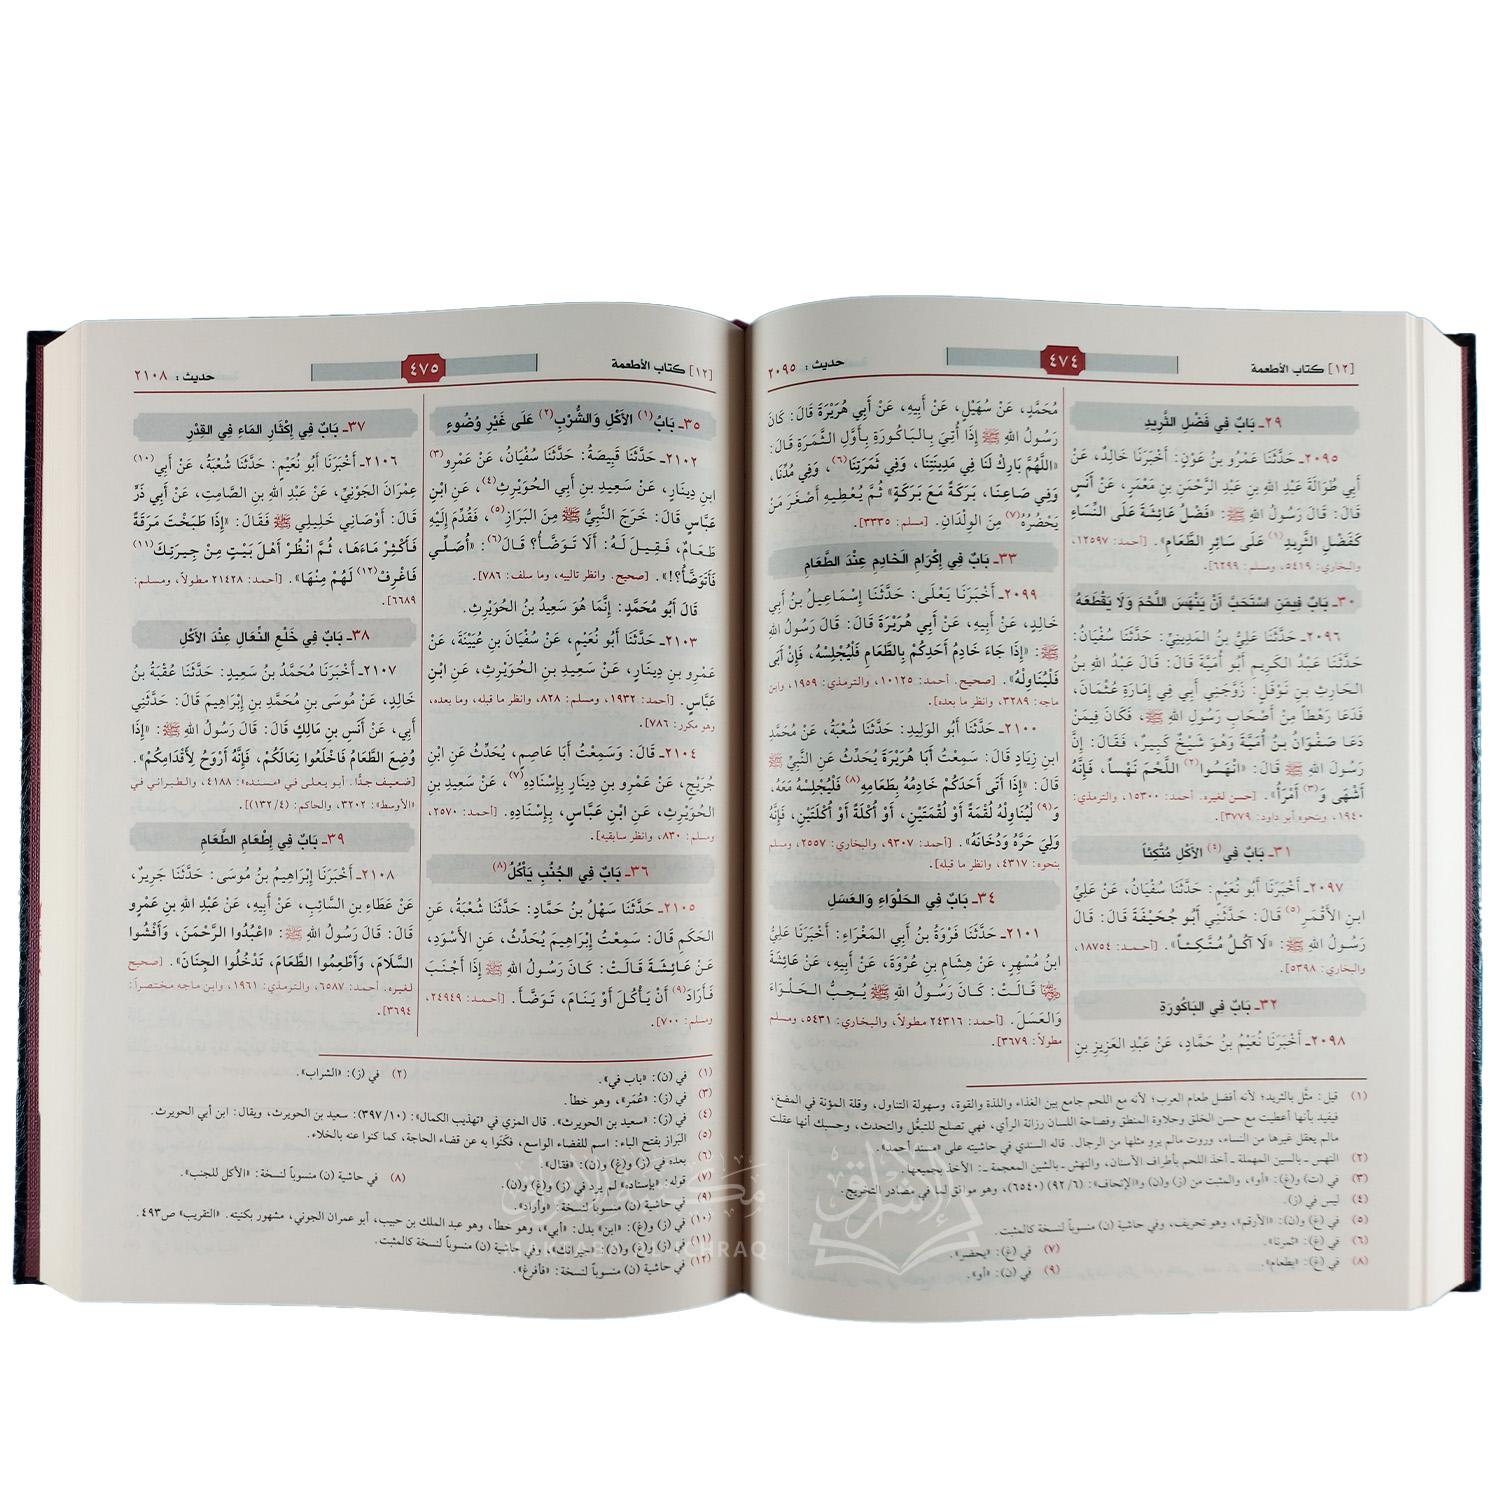 [١٢] كتاب الأطعمة
٤٧٤
حديث : ٢٠٩٥
٢٩ـ بَابٌ فِي فَضْلِ الثَّرِيدِ
٢٠٩٥ـ حَدَّثَنَا عَمْرُو بنُ عَوْنٍ: أَخْبَرَنَا خَالِدٌ، عَنْ
أَبِي طُوَالَةَ عَبْدِ اللهِ بنِ عَبْدِ الرَّحْمَنِ بنِ مَعْمَرٍ، عَنْ أَنَسٍ
قَالَ: قَالَ رَسُولُ اللهِ ﷺ: «فَضْلُ عَائِشَةَ عَلَى النِّسَاءِ
كَفَضْلِ الثَّرِيدِ(١) عَلَى سَائِرِ الطَّعَامِ». [أحمد: ١٢٥٩٧،
والبخاري: ٥٤١٩، ومسلم: ٦٢٩٩].
٣٠ـ بَابٌ فِيمَنِ اسْتَحَبَّ أَنْ يَنْهَسَ اللَّحْمَ وَلَا يَقْطَعَهُ
٢٠٩٦ـ حَدَّثَنَا عَلِيُّ بنُ المَدِينِيِّ: حَدَّثَنَا سُفْيَانُ:
حَدَّثَنَا عَبْدُ الكَرِيمِ أَبُو أُمَيَّةَ قَالَ: قَالَ عَبْدُ اللهِ بنُ
الحَارِثِ بنِ نَوْفَلٍ: زَوَّجَنِي أَبِي فِي إِمَارَةِ عُثْمَانَ،
فَدَعَا رَهْطاً مِنْ أَصْحَابِ رَسُولِ اللهِ ﷺ، فَكَانَ فِيمَنْ
دَعَا صَفْوَانُ بنُ أُمَيَّةَ وَهُوَ شَيْخٌ كَبِيرٌ، فَقَالَ: إِنَّ
رَسُولَ اللهِ ﷺ قَالَ: «انْهَسُوا(٢) اللَّحْمَ نَهْساً، فَإِنَّهُ
أَشْهَى وَ(٣) أَمْرَأُ». [حسن لغيره. أحمد: ١٥٣٠٠، والترمذي:
١٩٤٠، وبنحوه أبو داود: ٣٧٧٩].
٣١ـ بَابٌ فِي(٤) الأَكْلِ مُتَّكِئاً
٢٠٩٧ـ أَخْبَرَنَا أَبُو نُعَيْمٍ: حَدَّثَنَا سُفْيَانُ، عَنْ عَلِيِّ
ابنِ الأَقْمَرِ(٥) قَالَ: حَدَّثَنِي أَبُو جُحَيْفَةَ قَالَ: قَالَ
رَسُولُ اللهِ ﷺ: «لَا آكُلُ مُتَّكِئاً». [أحمد: ١٨٧٥٤،
والبخاري: ٥٣٩٨].
٣٢ـ بَابٌ فِي البَاكُورَةِ
٢٠٩٨ـ أَخْبَرَنَا نُعَيْمُ بنُ حَمَّادٍ، عَنْ عَبْدِ العَزِيزِ بنِ
مُحَمَّدٍ، عَنْ سُهَيْلٍ، عَنْ أَبِيهِ، عَنْ أَبِي هُرَيْرَةَ قَالَ: كَانَ
رَسُولُ اللهِ ﷺ إِذَا أُتِيَ بِالبَاكُورَةِ بِأَوَّلِ الثَّمَرَةِ قَالَ:
«اللَّهُمَّ بَارِكْ لَنَا فِي مَدِينَتِنَا، وَفِي ثَمَرَتِنَا(٦)، وَفِي مُدِّنَا،
وَفِي صَاعِنَا، بَرَكَةً مَعَ بَرَكَةٍ» ثُمَّ يُعْطِيهِ أَصْغَرَ مَنْ
يَحْضُرُهُ(٧) مِنَ الوِلْدَانِ. [مسلم: ٣٣٣٥].
٣٣ـ بَابٌ فِي إِكْرَامِ الخَادِمِ عِنْدَ الطَّعَامِ
٢٠٩٩ـ أَخْبَرَنَا يَعْلَى: حَدَّثَنَا إِسْمَاعِيلُ بنُ أَبِي
خَالِدٍ، عَنْ أَبِيهِ، عَنْ أَبِي هُرَيْرَةَ قَالَ: قَالَ رَسُولُ اللهِ
ﷺ: «إِذَا جَاءَ خَادِمُ أَحَدِكُمْ بِالطَّعَامِ فَلْيُجْلِسْهُ، فَإِنْ أَبَى
فَلْيُنَاوِلْهُ». [صحيح. أحمد: ١٠١٢٥، والترمذي: ١٩٥٩، وابن
ماجه: ٣٢٨٩، وانظر ما بعده].
٢١٠٠ـ حَدَّثَنَا أَبُو الوَلِيدِ: حَدَّثَنَا شُعْبَةُ، عَنْ مُحَمَّدِ
ابنِ زِيَادٍ قَالَ: سَمِعْتُ أَبَا هُرَيْرَةَ يُحَدِّثُ عَنِ النَّبِيِّ ﷺ
قَالَ: «إِذَا أَتَى أَحَدَكُمْ خَادِمُهُ بِطَعَامِهِ(٨) فَلْيُجْلِسْهُ مَعَهُ،
وَ(٩) لْيُنَاوِلْهُ لُقْمَةً أَوْ لُقْمَتَيْنِ، أَوْ أُكْلَةً أَوْ أُكْلَتَيْنِ، فَإِنَّهُ
وَلِيَ حَرَّهُ وَدُخَانَهُ». [أحمد: ٩٣٠٧، والبخاري: ٢٥٥٧، ومسلم
بنحوه: ٤٣١٧، وانظر ما قبله].
٣٤ـ بَابٌ فِي الحَلْوَاءِ وَالعَسَلِ
٢١٠١ـ حَدَّثَنَا فَرْوَةُ بنُ أَبِي المَغْرَاءِ: أَخْبَرَنَا عَلِيُّ
ابنُ مُسْهِرٍ، عَنْ هِشَامِ بنِ عُرْوَةَ، عَنْ أَبِيهِ، عَنْ عَائِشَةَ
قَالَتْ: كَانَ رَسُولُ اللهِ ﷺ يُحِبُّ الحَلْوَاءَ
وَالعَسَلَ. [أحمد: ٢٤٣١٦ مطولاً، والبخاري: ٥٤٣١، ومسلم
مطولاً: ٣٦٧٩].
(١) قيل: مثّل بالثريد؛ لأنه أفضل طعام العرب؛ لأنه مع اللحم جامع بين الغذاء واللذة والقوة، وسهولة التناول، وقلة المؤنة في المضغ،
فيفيد بأنها أعطيت مع حسن الخلق وحلاوة المنطق وفصاحة اللسان رزانة الرأي، فهي تصلح للتبعُّل والتحدث، وحسبك أنها عقلت
مالم يعقل غيرها من النساء، وروت مالم يرو مثلها من الرجال. قاله السندي في حاشيته على «مسند أحمد».
(٢) النهس ـ بالسين المهملة ـ أخذ اللحم بأطراف الأسنان، والنهش ـ بالشين المعجمة ـ: الأخذ بجميعها.
(٣) في (ت) و(غ): «أو»، والمثبت من (ز) و(ن) و«الإتحاف»: (٦/ ٩٢) (٦٥٤٠)، وهو موافق لما في مصادر التخريج.
(٤) ليس في (ز).
(٥) في (غ) و(ن): «الأرقم»، وهو تحريف، وفي حاشية (ن) منسوباً لنسخة كالمثبت.
(٦) في (غ): «ثمرنا».
(٧) في (غ): «يحضر».
(٨) في (غ): «بطعام».
(٩) في (ن): «أو».
[١٢] كتاب الأطعمة
٤٧٥
حديث : ٢١٠٨
٣٥ـ بَابُ(١) الأَكْلِ وَالشُّرْبِ(٢) عَلَى غَيْرِ وُضُوءٍ
٢١٠٢ـ حَدَّثَنَا قَبِيصَةُ: حَدَّثَنَا سُفْيَانُ، عَنْ عَمْرِو(٣)
ابنِ دِينَارٍ، عَنْ سَعِيدِ بنِ أَبِي الحُوَيْرِثِ(٤)، عَنِ ابْنِ
عَبَّاسٍ قَالَ: خَرَجَ النَّبِيُّ ﷺ مِنَ البَرَازِ(٥)، فَقُدِّمَ إِلَيْهِ
طَعَامٌ، فَقِيلَ لَهُ: أَلَا تَوَضَّأُ؟ قَالَ(٦): «أُصَلِّي
فَأَتَوَضَّأُ؟!». [صحيح. وانظر تالييه، وما سلف: ٧٨٦].
قَالَ أَبُو مُحَمَّدٍ: إِنَّمَا هُوَ سَعِيدُ بنُ الحُوَيْرِثِ.
٢١٠٣ـ حَدَّثَنَا أَبُو نُعَيْمٍ، عَنْ سُفْيَانَ بنِ عُيَيْنَةَ، عَنْ
عَمْرِو بنِ دِينَارٍ، عَنْ سَعِيدِ بنِ الحُوَيْرِثِ، عَنِ ابْنِ
عَبَّاسٍ. [أحمد: ١٩٣٢، ومسلم: ٨٢٨، وانظر ما قبله، وما بعده،
وهو مكرر: ٧٨٦].
٢١٠٤ـ قَالَ: وَسَمِعْتُ أَبَا عَاصِمٍ، يُحَدِّثُ عَنِ ابْنِ
جُرَيْجٍ، عَنْ عَمْرِو بنِ دِينَارٍ بِإِسْنَادِهِ(٧)، عَنْ سَعِيدِ بنِ
الحُوَيْرِثِ، عَنِ ابْنِ عَبَّاسٍ، بِإِسْنَادِهِ. [أحمد: ٢٥٧٠،
ومسلم: ٨٣٠، وانظر سابقيه].
٣٦ـ بَابٌ فِي الجُنُبِ يَأْكُلُ(٨)
٢١٠٥ـ حَدَّثَنَا سَهْلُ بنُ حَمَّادٍ: حَدَّثَنَا شُعْبَةُ، عَنِ
الحَكَمِ قَالَ: سَمِعْتُ إِبْرَاهِيمَ يُحَدِّثُ، عَنِ الأَسْوَدِ،
عَنْ عَائِشَةَ قَالَتْ: كَانَ رَسُولُ اللهِ ﷺ إِذَا أَجْنَبَ
فَأَرَادَ(٩) أَنْ يَأْكُلَ أَوْ يَنَامَ، تَوَضَّأَ. [أحمد: ٢٤٩٤٩،
ومسلم: ٧٠٠].
٣٧ـ بَابٌ فِي إِكْثَارِ المَاءِ فِي القِدْرِ
٢١٠٦ـ أَخْبَرَنَا أَبُو نُعَيْمٍ: حَدَّثَنَا شُعْبَةُ، عَنْ أَبِي(١٠)
عِمْرَانَ الجَوْنِيِّ، عَنْ عَبْدِ اللهِ بنِ الصَّامِتِ، عَنْ أَبِي ذَرٍّ
قَالَ: أَوْصَانِي خَلِيلِي ﷺ فَقَالَ: «إِذَا طَبَخْتَ مَرَقَةً
فَأَكْثِرْ مَاءَهَا، ثُمَّ انْظُرْ أَهْلَ بَيْتٍ مِنْ جِيرَتِكَ(١١)
فَاغْرِفْ(١٢) لَهُمْ مِنْهَا». [أحمد: ٢١٤٢٨ مطولاً، ومسلم:
٦٦٨٩].
٣٨ـ بَابٌ فِي خَلْعِ النِّعَالِ عِنْدَ الأَكْلِ
٢١٠٧ـ أَخْبَرَنَا مُحَمَّدُ بنُ سَعِيدٍ: حَدَّثَنَا عُقْبَةُ بنُ
خَالِدٍ، عَنْ مُوسَى بنِ مُحَمَّدِ بنِ إِبْرَاهِيمَ قَالَ: حَدَّثَنِي
أَبِي، عَنْ أَنَسِ بنِ مَالِكٍ قَالَ: قَالَ رَسُولُ اللهِ ﷺ: «إِذَا
وُضِعَ الطَّعَامُ فَاخْلَعُوا نِعَالَكُمْ، فَإِنَّهُ أَرْوَحُ لِأَقْدَامِكُمْ».
[ضعيف جدًّا. أبو يعلى في «مسنده»: ٤١٨٨، والطبراني في
«الأوسط»: ٣٢٠٢، والحاكم: (٤/ ١٣٢)].
٣٩ـ بَابٌ فِي إِطْعَامِ الطَّعَامِ
٢١٠٨ـ أَخْبَرَنَا إِبْرَاهِيمُ بنُ مُوسَى: حَدَّثَنَا جَرِيرٌ،
عَنْ عَطَاءِ بنِ السَّائِبِ، عَنْ أَبِيهِ، عَنْ عَبْدِ اللهِ بنِ عَمْرٍو
قَالَ: قَالَ رَسُولُ اللهِ ﷺ: «اعْبُدُوا الرَّحْمَنَ، وَأَفْشُوا
السَّلَامَ، وَأَطْعِمُوا الطَّعَامَ، تَدْخُلُوا الجِنَانَ». [صحيح
لغيره. أحمد: ٦٥٨٧، والترمذي: ١٩٦١، وابن ماجه مختصراً:
٣٦٩٤].
(١) في (ن): «باب في».
(٢) في (ز): «الشراب».
(٣) في (ز): «عُمَر»، وهو خطأ.
(٤) في (ز): «سعيد بن الحويرث». قال المزي في «تهذيب الكمال»: (١٠/ ٣٩٧): سعيد بن الحويرث، ويقال: ابن أبي الحويرث.
(٥) البَراز بفتح الباء: اسم للفضاء الواسع، فكَنَوا به عن قضاء الحاجة، كما كنوا عنه بالخلاء.
(٦) بعده في (ز) و(غ) و(ن): «فقال».
(٧) قوله: «بإسناده» لم يرد في (ز) و(غ) و(ن).
(٨) في حاشية (ن) منسوباً لنسخة: «الأكل للجنب».
(٩) في حاشية (ن) منسوباً لنسخة: «وأراد».
(١٠) في (ز) و(غ): «ابن» بدل: «أبي»، وهو خطأ، وهو عبد الملك بن حبيب، أبو عمران الجوني، مشهور بكنيته. «التقريب» ص٤٩٣.
(١١) في (ز) و(غ) و(ن): «جيرانك»، وفي حاشية (ن) منسوباً لنسخة كالمثبت.
(١٢) في حاشية (ن) منسوباً لنسخة: «فأفرغ».
MAKTABA AL ICHRAQ